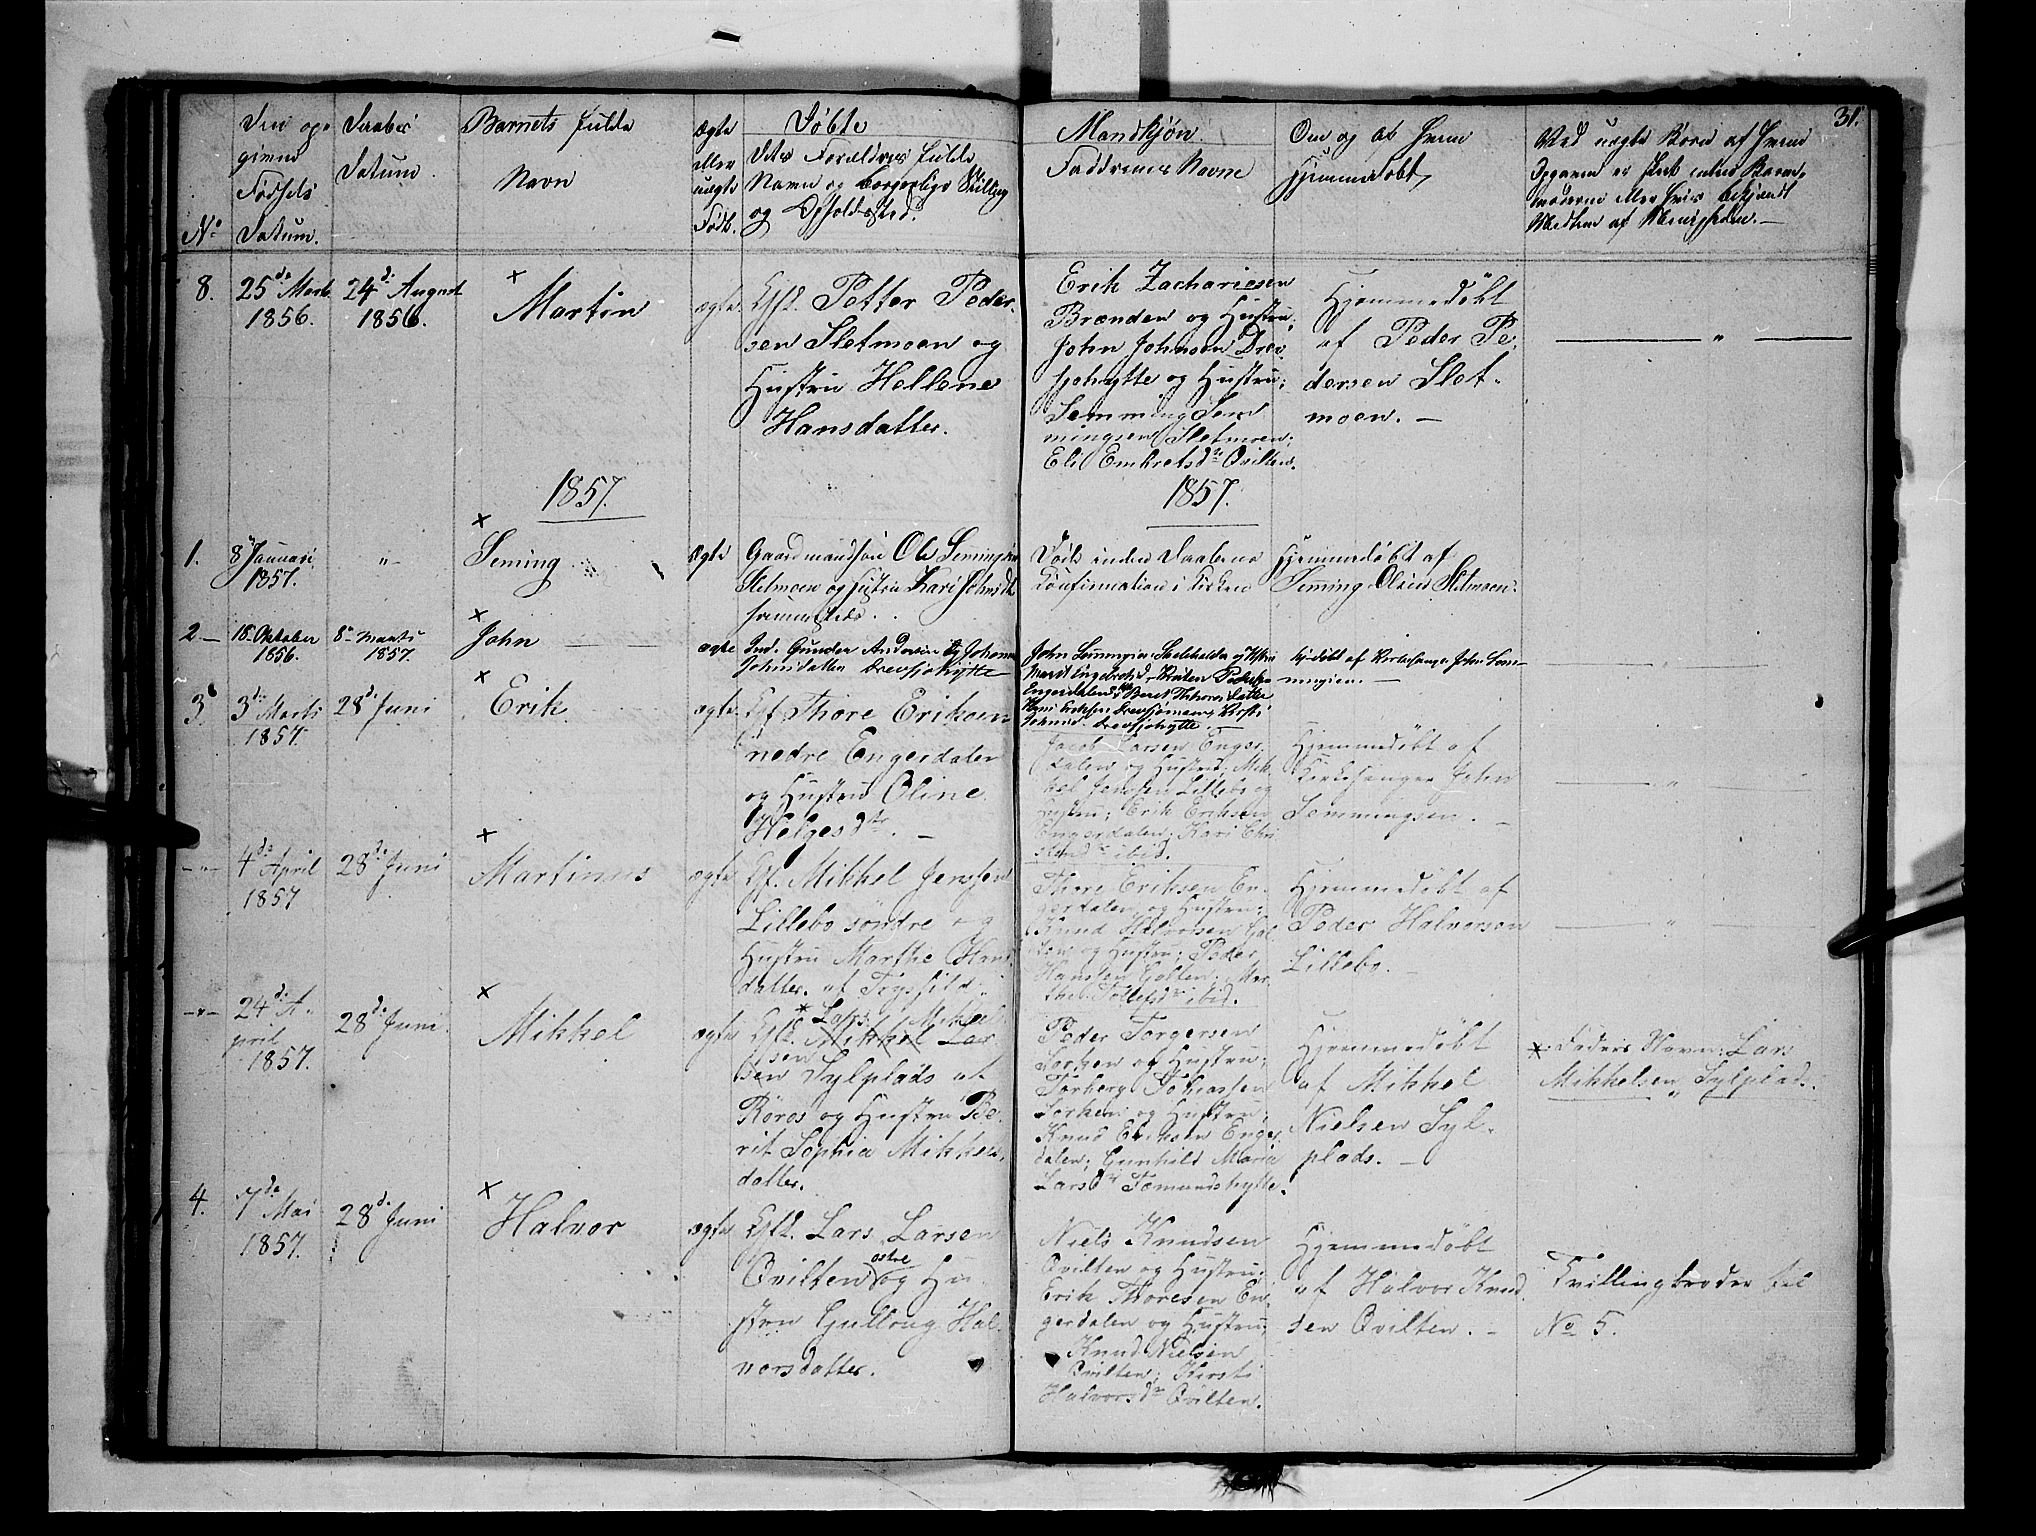 31.
Døbte
Mandkjøn.
No
Den op-
givne
Fødsels
Datum.
Daabs
Datum.
Barnets fulde
Navn
Ægte
eller
uægte
Født.
Dets Forældres fulde
Navn og borgerlige Stilling
og Opholdssted.
Faddernes Navne
Om og af hvem
hjemmedøbt,
Ved uægte Børn af hvem
Moderen eller hvis bekjendt
Medlem af Menigheden. —
8.
25de Marts
1856.
24de August
1856.
×
Martin
ægte
Gfd. Petter Peder-
sen Sletmoen og
Hustru Hellene
Hansdatter.
Erik Zachariesen
Brænden og Hustru;
John Johnsen Drev-
sjøhytte og Hustru;
Semming Sem-
mingsen Sletmoen;
Eli Embretsdr Qvilten.
Hjemmedøbt
af Peder Pe-
dersen Slet-
moen. —
— " —
1857.
1857.
1.
8de Januari
1857.
"
×
Seming
Ægte
Gaardmandsøn Ole Semingsen
Sletmoen og Hustru Kari Johnsdtr
sammesteds.
Døde inden Daabens
Confirmation i Kirken
Hjemmedøbt af
Semming Olsen Sletmoen.
2 —
18 Oktober
1856.
8de Marts
1857.
×
John
ægte
Ind. Gunder Andersen og Johanna
Johnsdatter Drevsjøhytte
John Semmingsen Skoleholder og Hustru
Marit Engebretsd.
Engerdalen, Beret Thoresdatter
Johnsd. Drevsjøhytte. —
hjdøbt af Kirkesanger John Sem-
mingsen. —
3.
3de Marts
1857.
28de Juni
×
Erik.
ægte
Gf Thore Eriksen
nedre Engerdalen
og Hustru Oline
Helgesdtr. —
Jacob Larsen Enger-
dalen og Hustru; Mik-
kel Jensen Lillebo og
Hustru; Erik Eriksen
Engerdalen; Kari Chri-
ibid.
Hjemmedøbt af
Kirkesanger John
Semmingsen. —
— " —
— " —
4de April
1857
28de Juni
×
Martinus
ægte
Gf. Mikkel Jenssen
Lillebo søndre og
Hustru Marthe Hans-
datter. af Trysfild.
Thore Eriksen En-
gerdalen og Hustru;
Knud Halvorsen Gal-
ten og Hustru; Peder
Hansen Galten; Mar-
the Tollefsdr ibid.
Hjemmedøbt af
Peder Halvorsen
Lillebo. —
— " —
— " —
24de A-
pril
1857.
28de Juni
×
Mikkel
ægte
× Lars Mikkel
Gfd. Mikkel Lar-
sen
sen Sylplads af
Røros og Hustru Be-
rit Sophia Mikkels-
datter.
Peder Torgersen
Sorken og Hustru;
Torberg Tobiassen
Sorken og Hustru;
Knud Eriksen Enger-
dalen; Gunhild Maria
Larsdr Fæmundshytte.
Hjemmedøbt
af Mikkel
Nielsen Syl-
plads. —
× Faders Navn: Lars
Mikkelsen Sylplads.
4.
7de Mai
1857.
28de Juni
×
Halvor
ægte
Gfd. Lars Larsen
Qvilten østre og Hu-
stru Gullaug Hal-
vorsdatter.
Niels Knudsen
Qvilten og Hustru;
Erik Thoresen En-
gerdalen og Hustru;
Knud Nielsen
Qvilten; Kirsti
Halvorsdr Qvilten.
Hjemmedøbt
af Halvor Knud-
sen Qvilten. —
Tvillingbroder til
No 5.